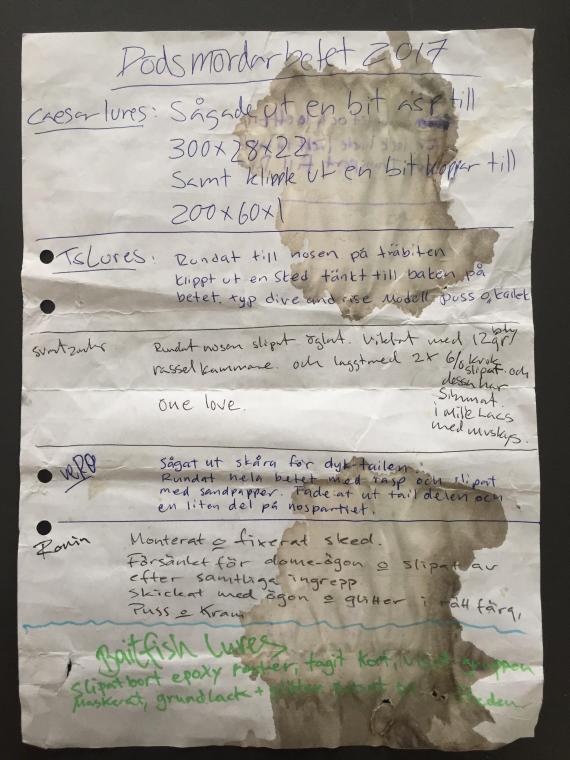 Dödsmördarbetet 2017
Caesarlures: Sågade ut en bit asp till
300x28x22
Samt klippte ut en bit koppar till
200x60x1
TsLures: Rundat till nosen på träbiten
klippt ut en sked tänkt till baken på
betet. typ dive and rise modell. Puss o, kallt
Rundat nosen slipat öglat. Viktat med 12gr bly
rasselkammare. och laggt med 2x 6/0 krok
slipat och
dessa har
simmat.
i Mille Lacs
med muskys.
one love.
Sågat ut skåra för dyk-tailen.
Rundat hela betet med rasp och slipat
med sandpapper. Fade-at ut tail delen och
en liten del på nospartiet.
Ronin Monterat o fixerat sked.
Försänket för dome-ögon o slipat av
efter samtliga ingrepp
skickat med ögon o glitter i rätt färg,
Puss o Kram
Baitfish Lures
slipat bort epoxy rester, tagit kort,
Maskerat, grundlack +